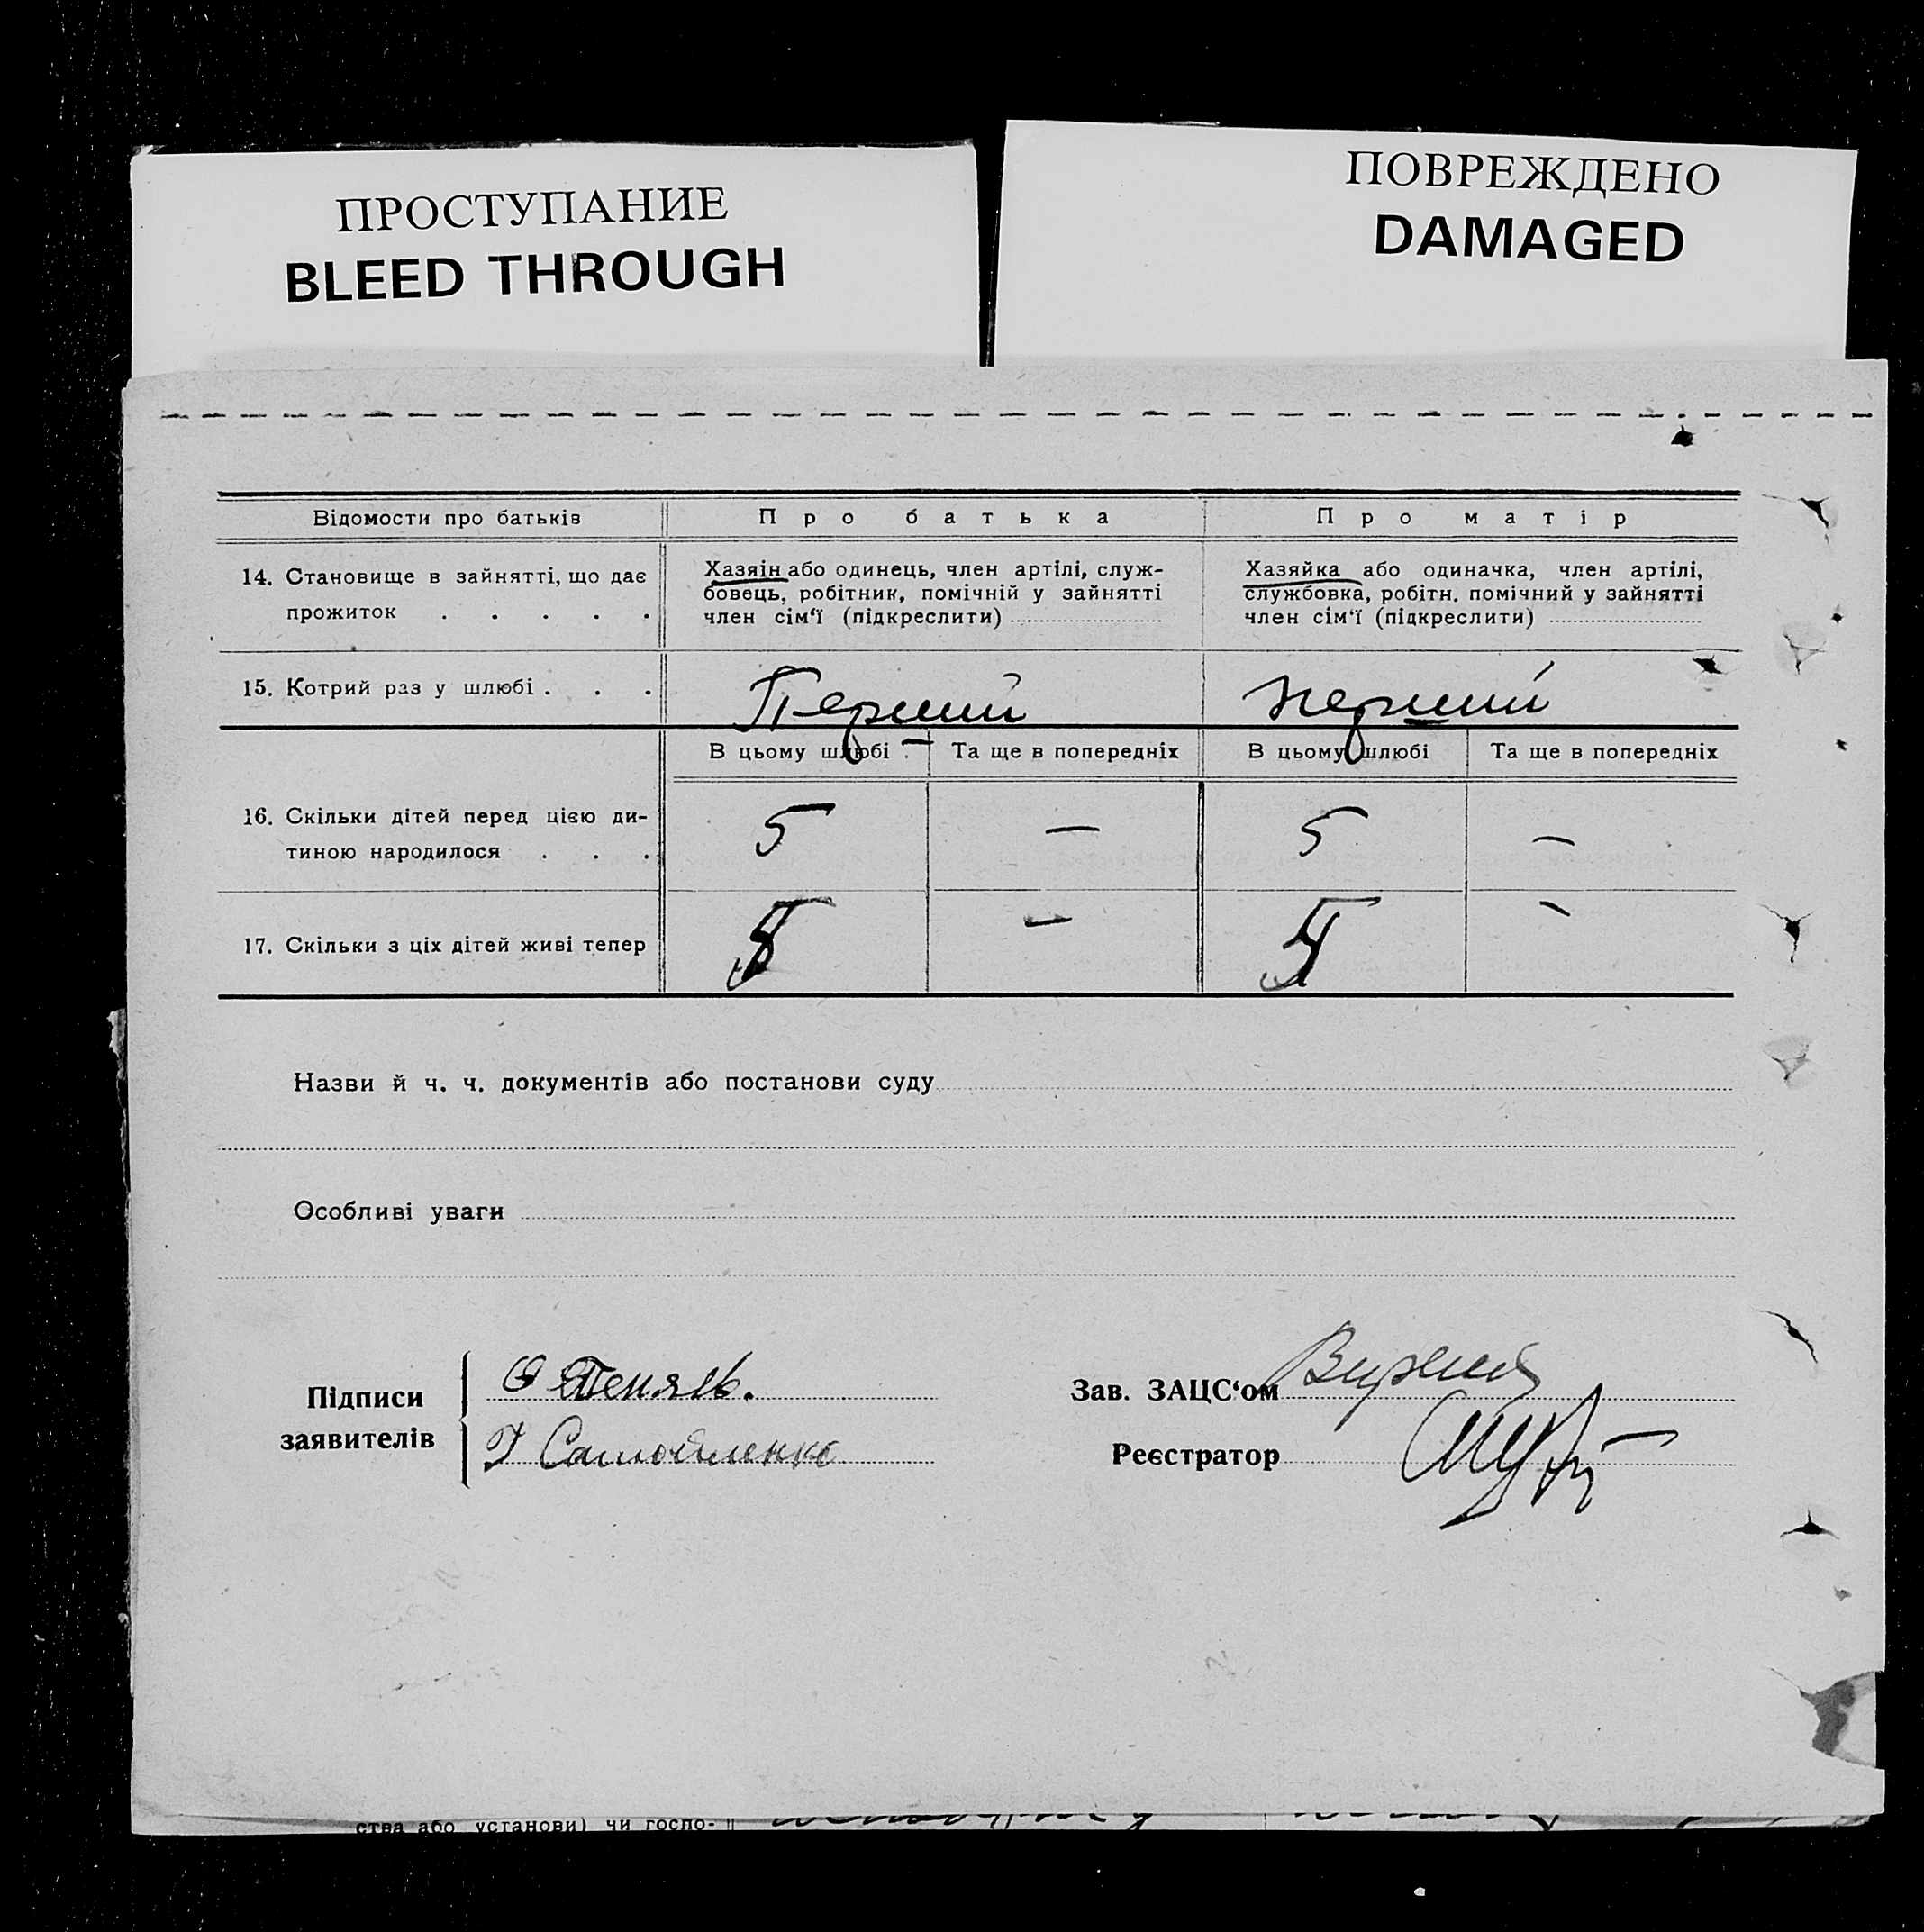 ПРОСТУПАНИЕ
BLEED THROUGH
ПОВРЕЖДЕНО
DAMAGED
Відомости про батьків
Про батька
Про матір
14. Становище в зайнятті, що дає
прожиток . . . . .
Хазяін або одинець, член артілі, служ-
бовець, робітник, помічній у зайнятті
член сім‘ї (підкреслити)
Хазяйка або одиначка, член артілі,
службовка, робітн. помічний у зайнятті
член сім‘ї (підкреслити)
15. Котрий раз у шлюбі . . .
Перший
перший
В цьому шлюбі
Та ще в попередніх
В цьому шлюбі
Та ще в попередніх
16. Скільки дітей перед цією ди-
тиною народилося . . .
5
—
5
—
17. Скільки з ціх дітей живі тепер
—
—
Назви й ч. ч. документів або постанови суду
Особливі уваги
Підписи
заявителів
Г Самойленко
Зав. ЗАЦС‘ом
Реєстратор
ства або установи) чи госпо-